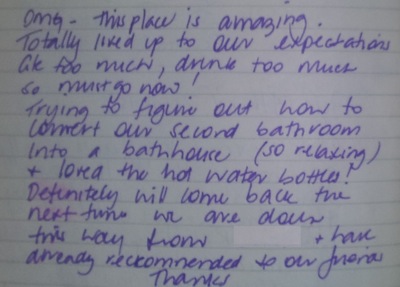 OMG - this place is amazing.
Totally lived up to our expectations
ate too much, drank too much
so must go now!
Trying to figure out how to
convert our second bathroom
into a bathhouse (so relaxing)
+ loved the hot water bottles!
Definitely will come back the
next time we are down
this way from + have
already reckommended to our friends
Thanks